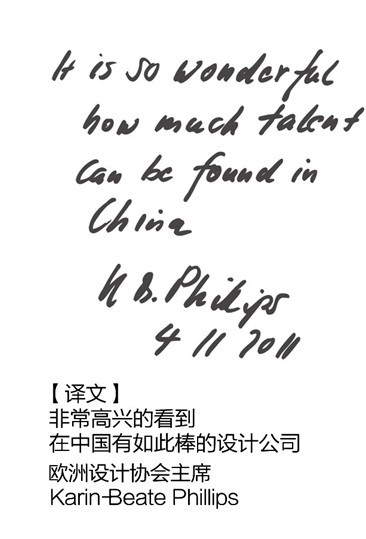 It is so wonderful
how much talent
can be found in
China
K B. Phillips
4 11 2011
【译文】
非常高兴的看到
在中国有如此棒的设计公司
欧洲设计协会主席
Karin-Beate Phillips